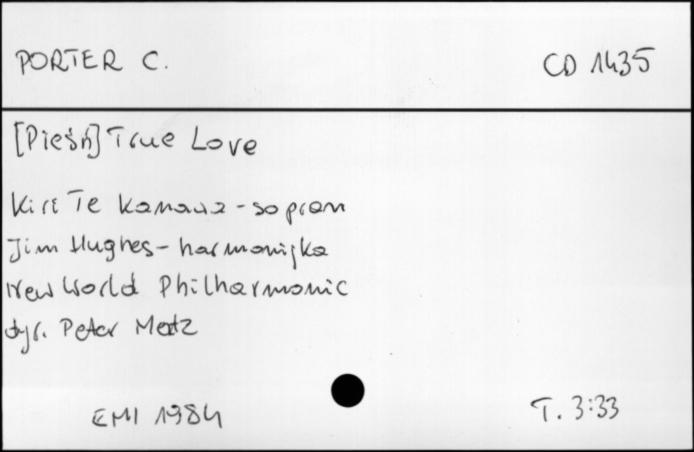 PORTER C.
CD 1435
[Pieśń] True Love
Kiri Te Kanawa - sopran
Jim Hughes - harmonijka
New World Philharmonic
dyr. Peter Matz
EMI 1984
T. 3:33